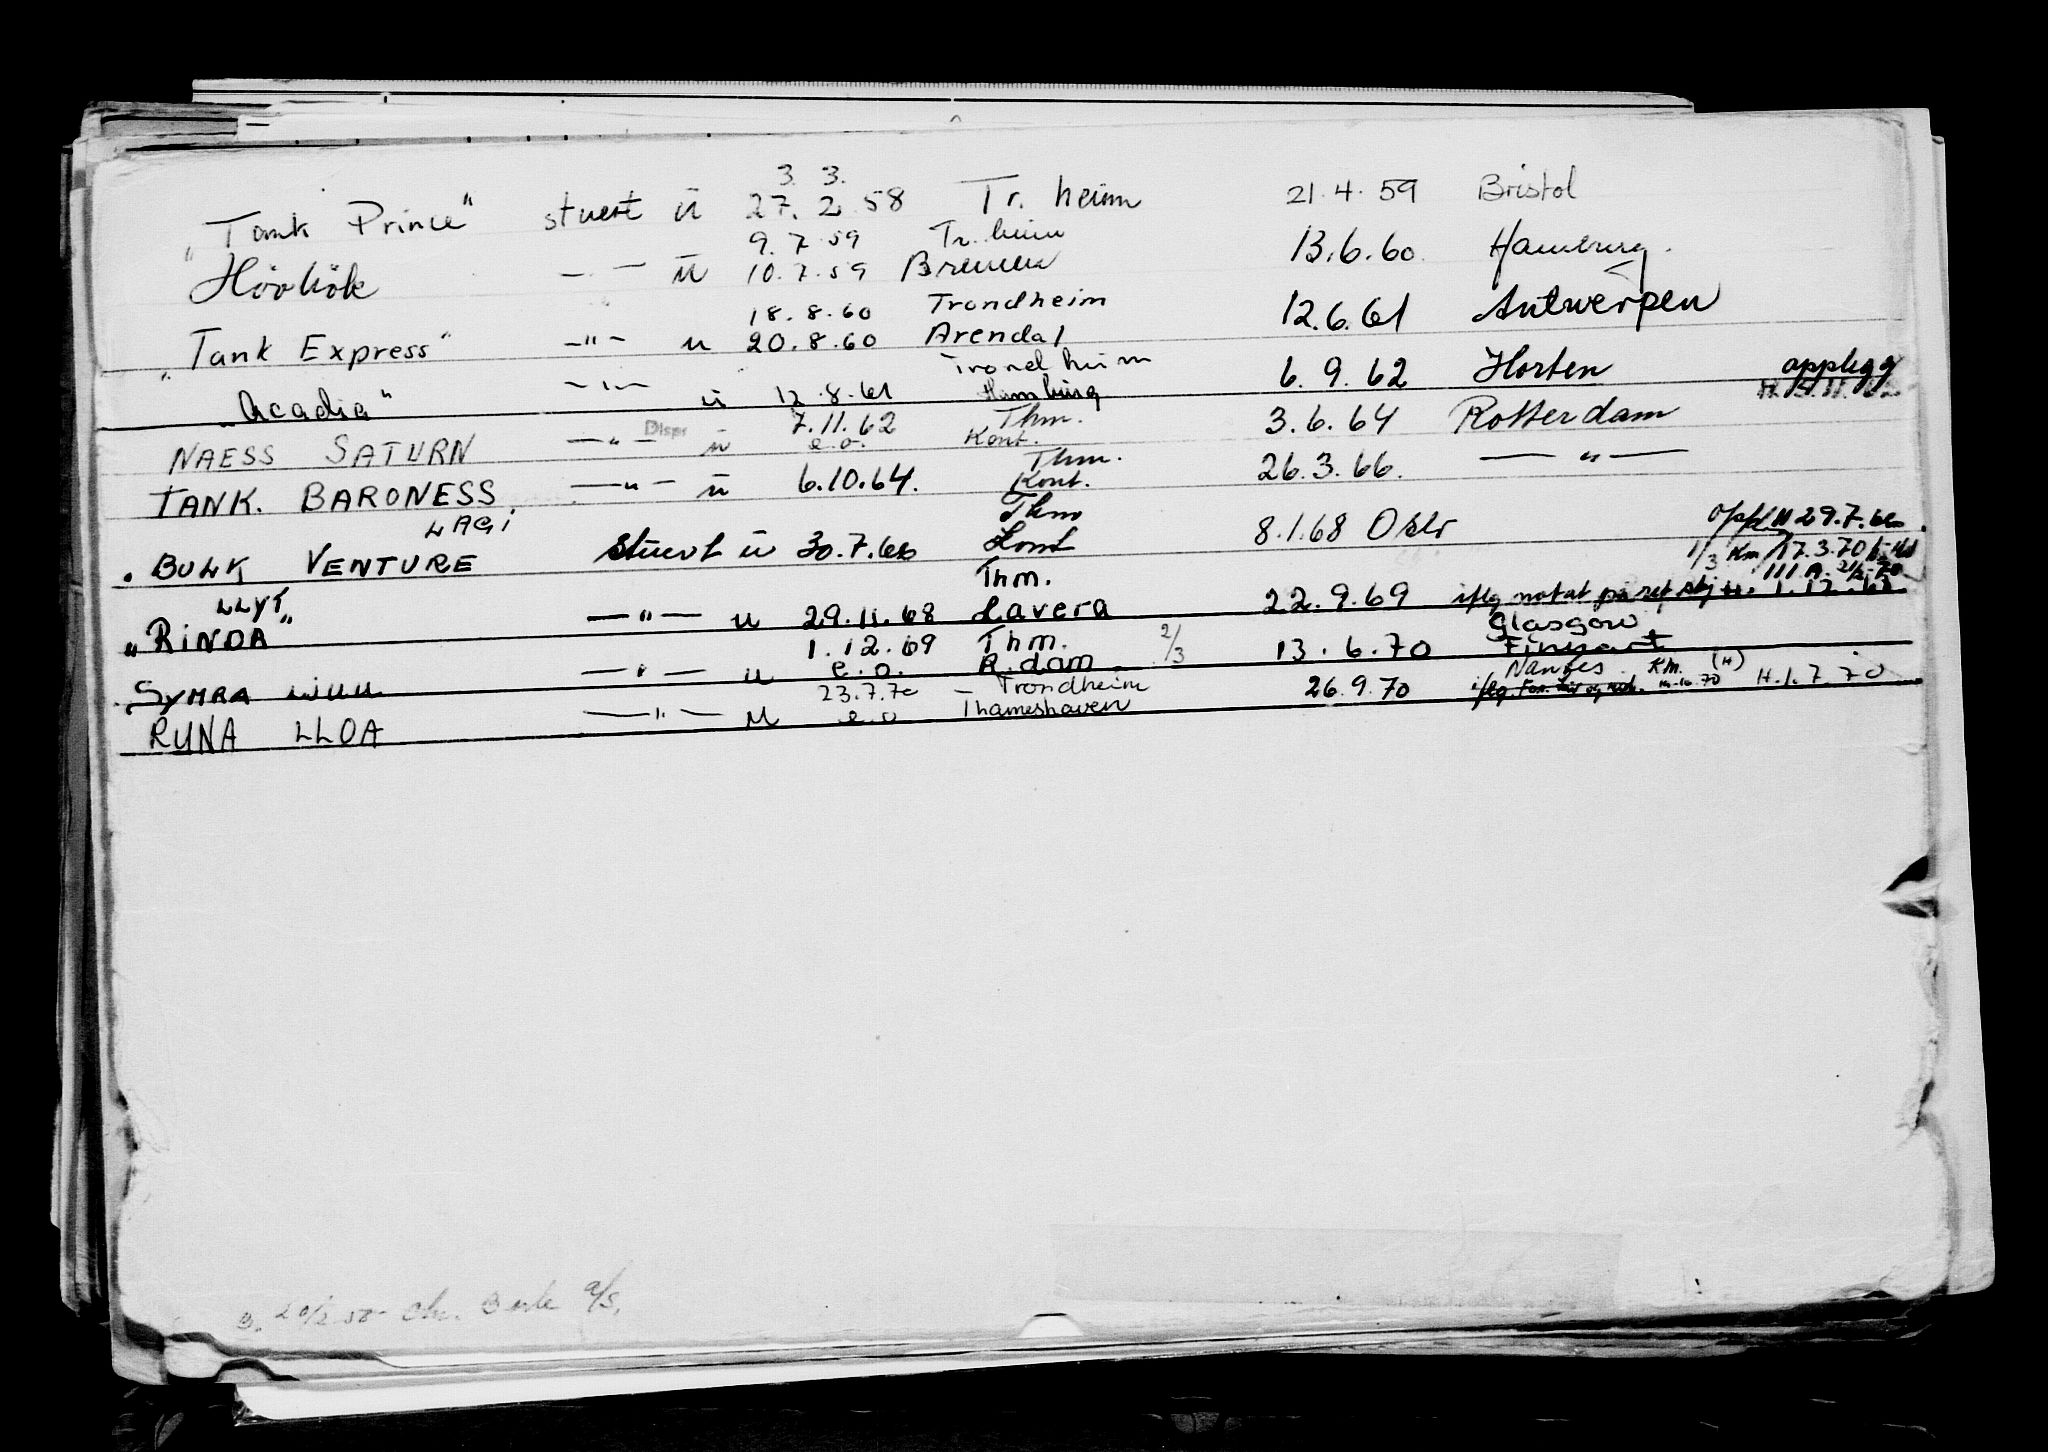 3. 3.
"Tank Prince" stuert u 27. 2. 58 Tr. heim 21. 4. 59 Bristol
9. 7. 59 Tr. heim
Hövkök — " — u 10. 7. 59 Bremen 13. 6. 60 Hamburg.
18. 8. 60 Trondheim
"Tank Express" — " — u 20. 8. 60 Arendal 12. 6. 61 Antwerpen
Trondheim
"Acadia" — " — u 12. 8. 61 Hamburg 6. 9. 62 Horten opplegg
7. 11. 62 Thm.
NAESS SATURN Dispr — " — u e. o. Kont. 3. 6. 64 Rotterdam
Thm.
TANK. BARONESS — " — u 6. 10. 64. Kont. 26. 3. 66. — " —
LAGI Thm
BULK VENTURE stuert u 30. 7. 66 8. 1. 68 Oslo oppl H 29. 7. 66
1/3 Km 17. 3. 70
LLYT Thm.
"RINDA" — " — u 29. 11. 68 Lavera 22. 9. 69 iflg notat på 1. 12. 68
1. 12. 69 Thm. 2/3 Glasgow
SYMRA — " — u e. o. R. dam 13. 6. 70 Finnart
23. 7. 70 — Trondheim Nantes Km. (H)
RUNA LLOA — " — u e. o Thameshaven 26. 9. 70 iflg. 70 H. 1. 7. 70
B. Chr. a/s.